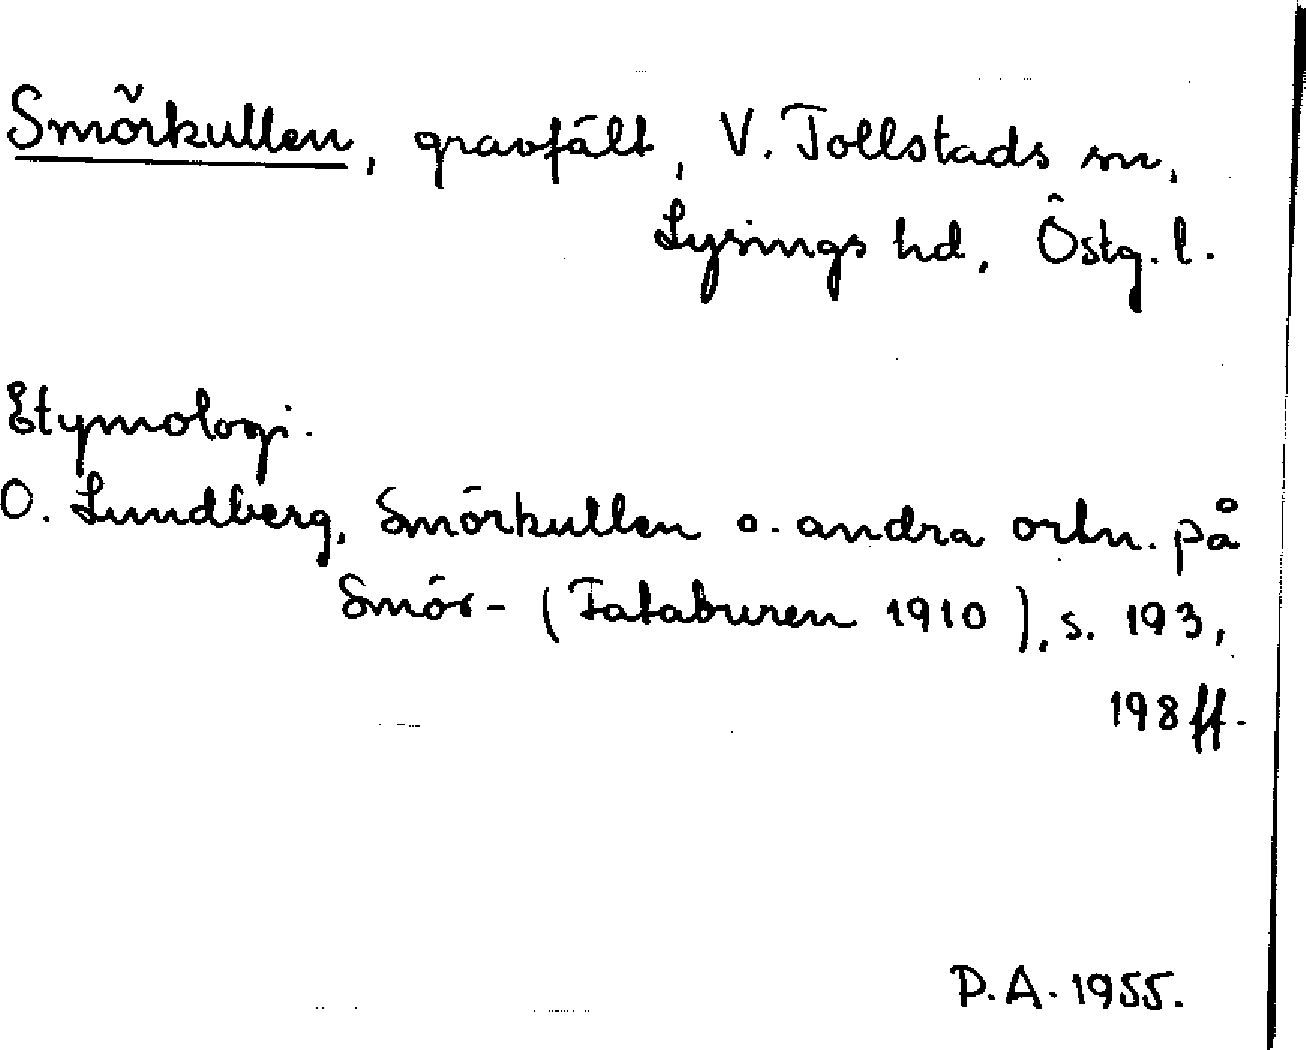 Smörkullen, gravfält, V. Tollstads sn,
Lysings hd, Östg. l.
Etymologi.
O. Lundberg, Smörkullen o. andra ortn. på
Smör- (Fataburen 1910), s. 193,
198 ff.
P.A. 1955.